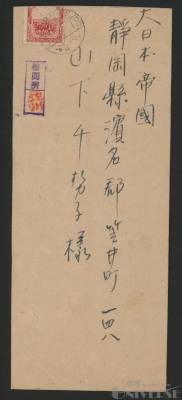 大日本帝國
静岡縣濱名郡笠井町一四八
山下千
子様
檢閱濟
UNIVERSE